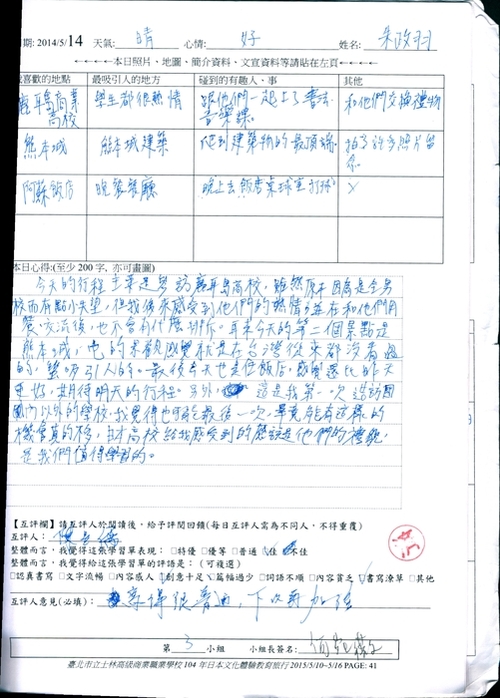 期: 2014/5/14 天氣: 晴 心情: 好 姓名: 朱政羽
←←←←本日照片、地圖、簡介資料、文宣資料等請貼在左頁←←←←
喜歡的地點 最吸引人的地方 碰到的有趣人、事 其他
鹿耳島商業高校 學生都很熱情 跟他們一起上了書法音樂課 和他們交換禮物
熊本城 熊本城建築 爬到建築物的最頂端 拍了許多照片留念
阿蘇飯店 晚餐餐廳 晚上去飯店桌球室打球 X
本日心得:(至少 200 字, 亦可畫圖)
今天的行程主要是參訪鹿耳島高校,雖然原本因為是全男
校而有點小失望,但我後來感受到他們的熱情,並在和他們
交流後,也不會有代溝。再來今天的第二個景點是
熊本城,它的外觀感覺就是在台灣從來都沒看過
的,蠻吸引人的。最後今天也是住飯店,感覺比昨天
更好,期待明天的行程。另外,這是我第一次造訪國
國內以外的學校,我覺得也可能是最後一次,畢竟能有這樣的
機會真的不多,日本高校給我感受到的應該是他們的禮貌,
是我們值得學習的。
【互評欄】請互評人於閱讀後,給予評閱回饋(每日互評人需為不同人,不得重覆)
互評人:
整體而言,我覺得這張學習單表現:□特優 □優等 □普通 □佳 不佳
整體而言,我覺得給這張學習單的評語是:(可複選)
□認真書寫 □文字流暢 □內容感人 □創意十足 □篇幅過少 □詞語不順 □內容貧乏 書寫潦草 □其他
互評人意見(必填): 寫得很普通,下次再加強
第 3 小組 小組長簽名:
臺北市立士林高級商業職業學校 104 年日本文化體驗教育旅行 2015/5/10~5/16 PAGE: 41